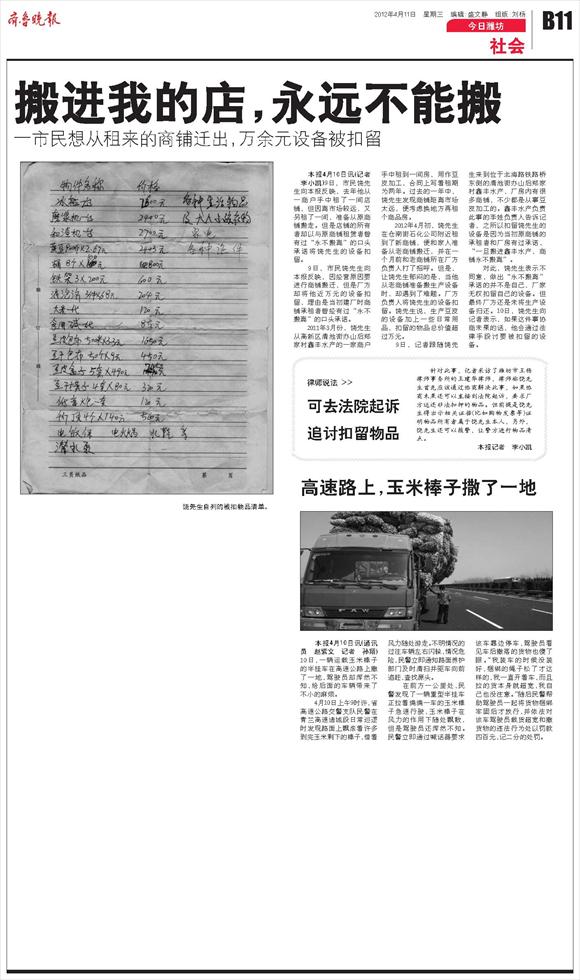 齐鲁晚报
2012年4月11日 星期三 编辑:盛文静 组版:刘杨
今日潍坊
社会
B11
搬进我的店,永远不能搬
—市民想从租来的商铺迁出,万余元设备被扣留
物件名称 价格
三页纸品
第 页
饶先生自列的被扣物品清单。
本报4月10日讯(记者
李小凯)9日,市民饶先
生向本报反映,去年他从
一商户手中租了一间店
铺,但因离市场较远,又
另租了一间,准备从原商
铺搬走。但是店铺的所有
者却以与原商铺租赁者曾
有过“永不搬离”的口头
承诺将饶先生的设备扣
留。
9日,市民饶先生向
本报反映,因经营原因要
进行商铺搬迁,但是厂方
却将他近万元的设备扣
留,理由是当初建厂时商
铺承租者曾经有过“永不
搬离”的口头承诺。
2011年5月份,饶先生
从高新区清池街办山后郑
家村鑫丰水产的一家商户
手中租到一间房,用作豆
皮加工,合同上写着租期
为两年。过去的一年中,
饶先生发现商铺距离市场
太远,便考虑换地方再租
个商品房。
2012年4月初,饶先生
在仓南街石化公司附近租
到了新商铺,便和家人准
备从老商铺搬迁,并在一
个月前和老商铺所在厂方
负责人打了招呼。但是,
让饶先生郁闷的是,当他
从老商铺准备搬生产设备
时,却遇到了难题。厂方
负责人将饶先生的设备扣
留。饶先生说,生产豆皮
的设备加上一些日常用
品,扣留的物品总价值超
过万元。
9日,记者跟随饶先
生来到位于北海路铁路桥
东侧的清池街办山后郑家
村鑫丰水产,厂房内有很
多商铺,不少都是从事豆
皮加工的。鑫丰水产负责
此事的李姓负责人告诉记
者,之所以扣留饶先生的
设备是因为当初原商铺的
承租者和厂房有过承诺,
“一旦搬进鑫丰水产,商
铺永不搬离”。
对此,饶先生表示不
同意,做出“永不搬离”
承诺的并不是自己,厂家
无权扣留自己的设备。但
最终厂方还是未将生产设
备归还。10日,饶先生向
记者表示,如果这件事协
商未果的话,他会通过法
律手段讨要被扣留的设
备。
律师说法 >>
可去法院起诉
追讨扣留物品
针对此事,记者采访了潍坊市王杨
律师事务所的王建华律师,律师称饶先
生首先应该通过协商解决此事,如果协
商未果还可以直接到法院起诉,要求厂
方返还非法扣押的物品。但前提是饶先
生得出示相关证据(比如购物发票等)证
明物品所有者属于饶先生本人。另外,
饶先生还可以报警,让警方进行物品清
点。
本报记者 李小凯
高速路上,玉米棒子撒了一地
本报4月10日讯(通讯
员 赵紫文 记者 孙翔)
10日,一辆运载玉米棒子
的半挂车在高速公路上撒
了一地,驾驶员却浑然不
知,给后面的车辆带来了
不小的麻烦。
4月10日上午9时许,省
高速公路交警支队民警在
青兰高速诸城段日常巡逻
时发现路面上飘落着许多
剥完玉米剩下的棒子,借着
风力随处游走。不明情况的
过往车辆左右闪躲,情况危
险,民警立即通知路面养护
部门及时清扫并驱车向前
追赶,查找源头。
在前方一公里处,民
警发现了一辆重型半挂车
正拉着满满一车的玉米棒
子急速行驶,玉米棒子在
风力的作用下随处飘散,
但是驾驶员还浑然不知。
民警立即通过喊话器要求
该车靠边停车,驾驶员看
见车后撒落的货物也傻了
眼。“我装车的时候没装
好,捆绑的绳子松了才这
样的,我一直开着车,而且
拉的货本身就超宽,我自
己也没注意。”随后民警帮
助驾驶员一起将货物捆绑
牢固后才放行,并依法对
该车驾驶员载货超宽和撒
货物的违法行为处以罚款
四百元,记二分的处罚。